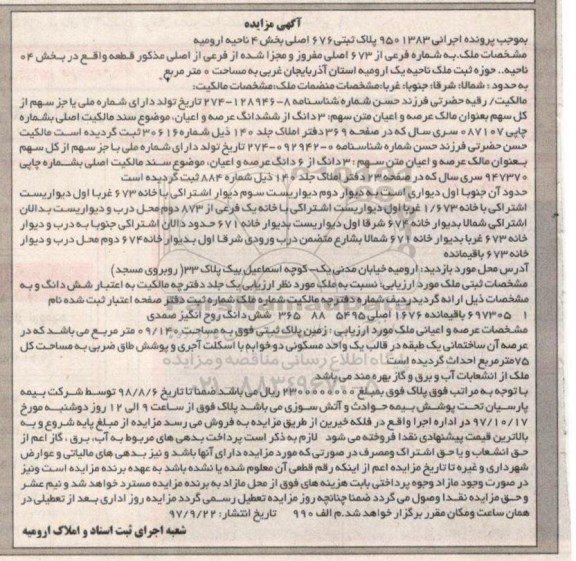 آگهی مزایده
بموجب پرونده اجرائی ۹۵۰۱۳۸۳ پلاک ثبتی ۶۷۶ اصلی بخش ۴ ناحیه ارومیه
مشخصات ملک.به شماره فرعی از ۶۷۳ اصلی مفروز و مجزا شده از فرعی از اصلی مذکور قطعه واقع در بخش ۰۴
ناحیه.. حوزه ثبت ملک ناحیه یک ارومیه استان آذربایجان غربی به مساحت ۰ متر مربع
به حدود : شمالا: شرقا: جنوبا: غربا: مشخصات منضمات ملک: مشخصات مالکیت:
مالکیت/ رقیه حضرتی فرزند حسن شماره شناسنامه ۸-۱۲۸۹۴۶-۲۷۴ تاریخ تولد دارای شماره ملی یا جز سهم از
کل سهم بعنوان مالک عرصه و اعیان متن سهم: ۳ دانگ از ششدانگ عرصه و اعیان، موضوع سند مالکیت اصلی بشماره
چاپی ۰۸۷۱۰۷ سری سال که در صفحه ۳۶۹ دفتر املاک جلد ۱۴۰ ذیل شماره ۳۰۶۱۶ ثبت گردیده است مالکیت
حسن حضرتی فرزند حسن شماره شناسنامه ۰-۰۹۲۹۴۲-۲۷۴ تاریخ تولد دارای شماره ملی با جز سهم از کل سهم
بعنوان مالک عرصه و اعیان متن سهم : ۳ دانگ از ۶ دانگ عرصه و اعیان، موضوع سند مالکیت اصلی بشماره چاپی
۹۴۷۳۷۰ سری سال که در صفحه ۲۳ دفتر املاک جلد ۱۴۰ ذیل شماره ۸۸۴ ثبت گردیده است
حدود آن جنوبا اول دیواری است به دیوار دوم دیواریست سوم دیوار اشتراکی با خانه ۶۷۳ غربا اول دیواریست
اشتراکی با خانه ۱/۶۷۳ غربا اول دیواریست اشتراکی با خانه یک فرعی از ۸۷۳ دوم محل درب و دیواریست بدالان
اشتراکی شمالا بدیوار خانه ۶۷۴ شرقا اول دیواریست بدیوار خانه ۶۷۱ حدود دالان اشتراکی جنوبا به درب و دیوار
خانه ۶۷۳ غربا بدیوار خانه ۶۷۱ شمالا بشارع متضمن درب ورودی شرقا اول بدیوار خانه ۶۷۴ دوم محل درب و دیوار
خانه ۶۷۳ باقیمانده
آدرس محل مورد بازدید: ارومیه خیابان مدنی یک- کوچه اسماعیل بیک پلاک ۳۳( روبروی مسجد)
مشخصات ثبتی ملک مورد ارزیابی: نسبت به ملک مورد نظر ارزیابی یک جلد دفترچه مالکیت به اعتبار شش دانگ و به
مشخصات ذیل ارائه گردیدردیف شماره دفترچه مالکیت شماره ملک شماره ثبت دفتر صفحه اعتبار ثبت شده نام
۱ ۶۹۷۳۰۵ باقیمانده ۱۶۷۶ اصلی ۵۴۹۵ ۸۸ ۳۶۵ شش دانگ روح انگیز صمدی
مشخصات عرصه و اعیانی ملک مورد ارزیابی : زمین پلاک ثبتی فوق به مساحت ۰۹/۱۴۰ متر مربع می باشد که در
عرصه آن ساختمانی یک طبقه در قالب یک واحد مسکونی دو خوابه با اسکلت آجری و پوشش طاق ضربی به مساحت کل
۷۵مترمربع احداث گردیده است
ملک از انشعابات آب و برق و گاز بهره مند می باشد
با توجه به مراتب فوق پلاک فوق بمبلغ ۲۳۰۰۰۰۰۰۰۰ ریال می باشد ضمنا تا تاریخ ۹۸/۸/۶ توسط شرکت بیمه
پارسیان تحت پوشش بیمه حوادث و آتش سوزی می باشد پلاک فوق از ساعت ۹ الی ۱۲ روز دوشنبه مورخ
۹۷/۱۰/۱۷ در اداره اجرا واقع در فلکه خیبرین از طریق مزایده به فروش می رسد مزایده از مبلغ پایه شروع و به
بالاترین قیمت پیشنهادی نقدا فروخته می شود لازم به ذکر است پرداخت بدهی های مربوط به آب، برق ، گاز اعم از
حق انشعاب و یا حق اشتراک ومصرف در صورتی که مورد مزایده دارای آنها باشد و نیز بدهی های مالیاتی و عوارض
شهرداری و غیره تا تاریخ مزایده اعم از اینکه رقم قطعی آن معلوم شده یا نشده باشد به عهده برنده مزایده است ونیز
در صورت وجود مازاد وجوه پرداختی بابت هزینه های فوق از محل مازاد به برنده مزایده مسترد خواهد شد و نیم عشر
و حق مزایده نقدا وصول می گردد ضمنا چنانچه روز مزایده تعطیل رسمی گردد مزایده روز اداری بعد از تعطیلی در
همان ساعت ومکان مقرر برگزار خواهد شد.م الف ۹۹۰ تاریخ انتشار: ۹۷/۹/۲۲
شعبه اجرای ثبت اسناد و املاک ارومیه